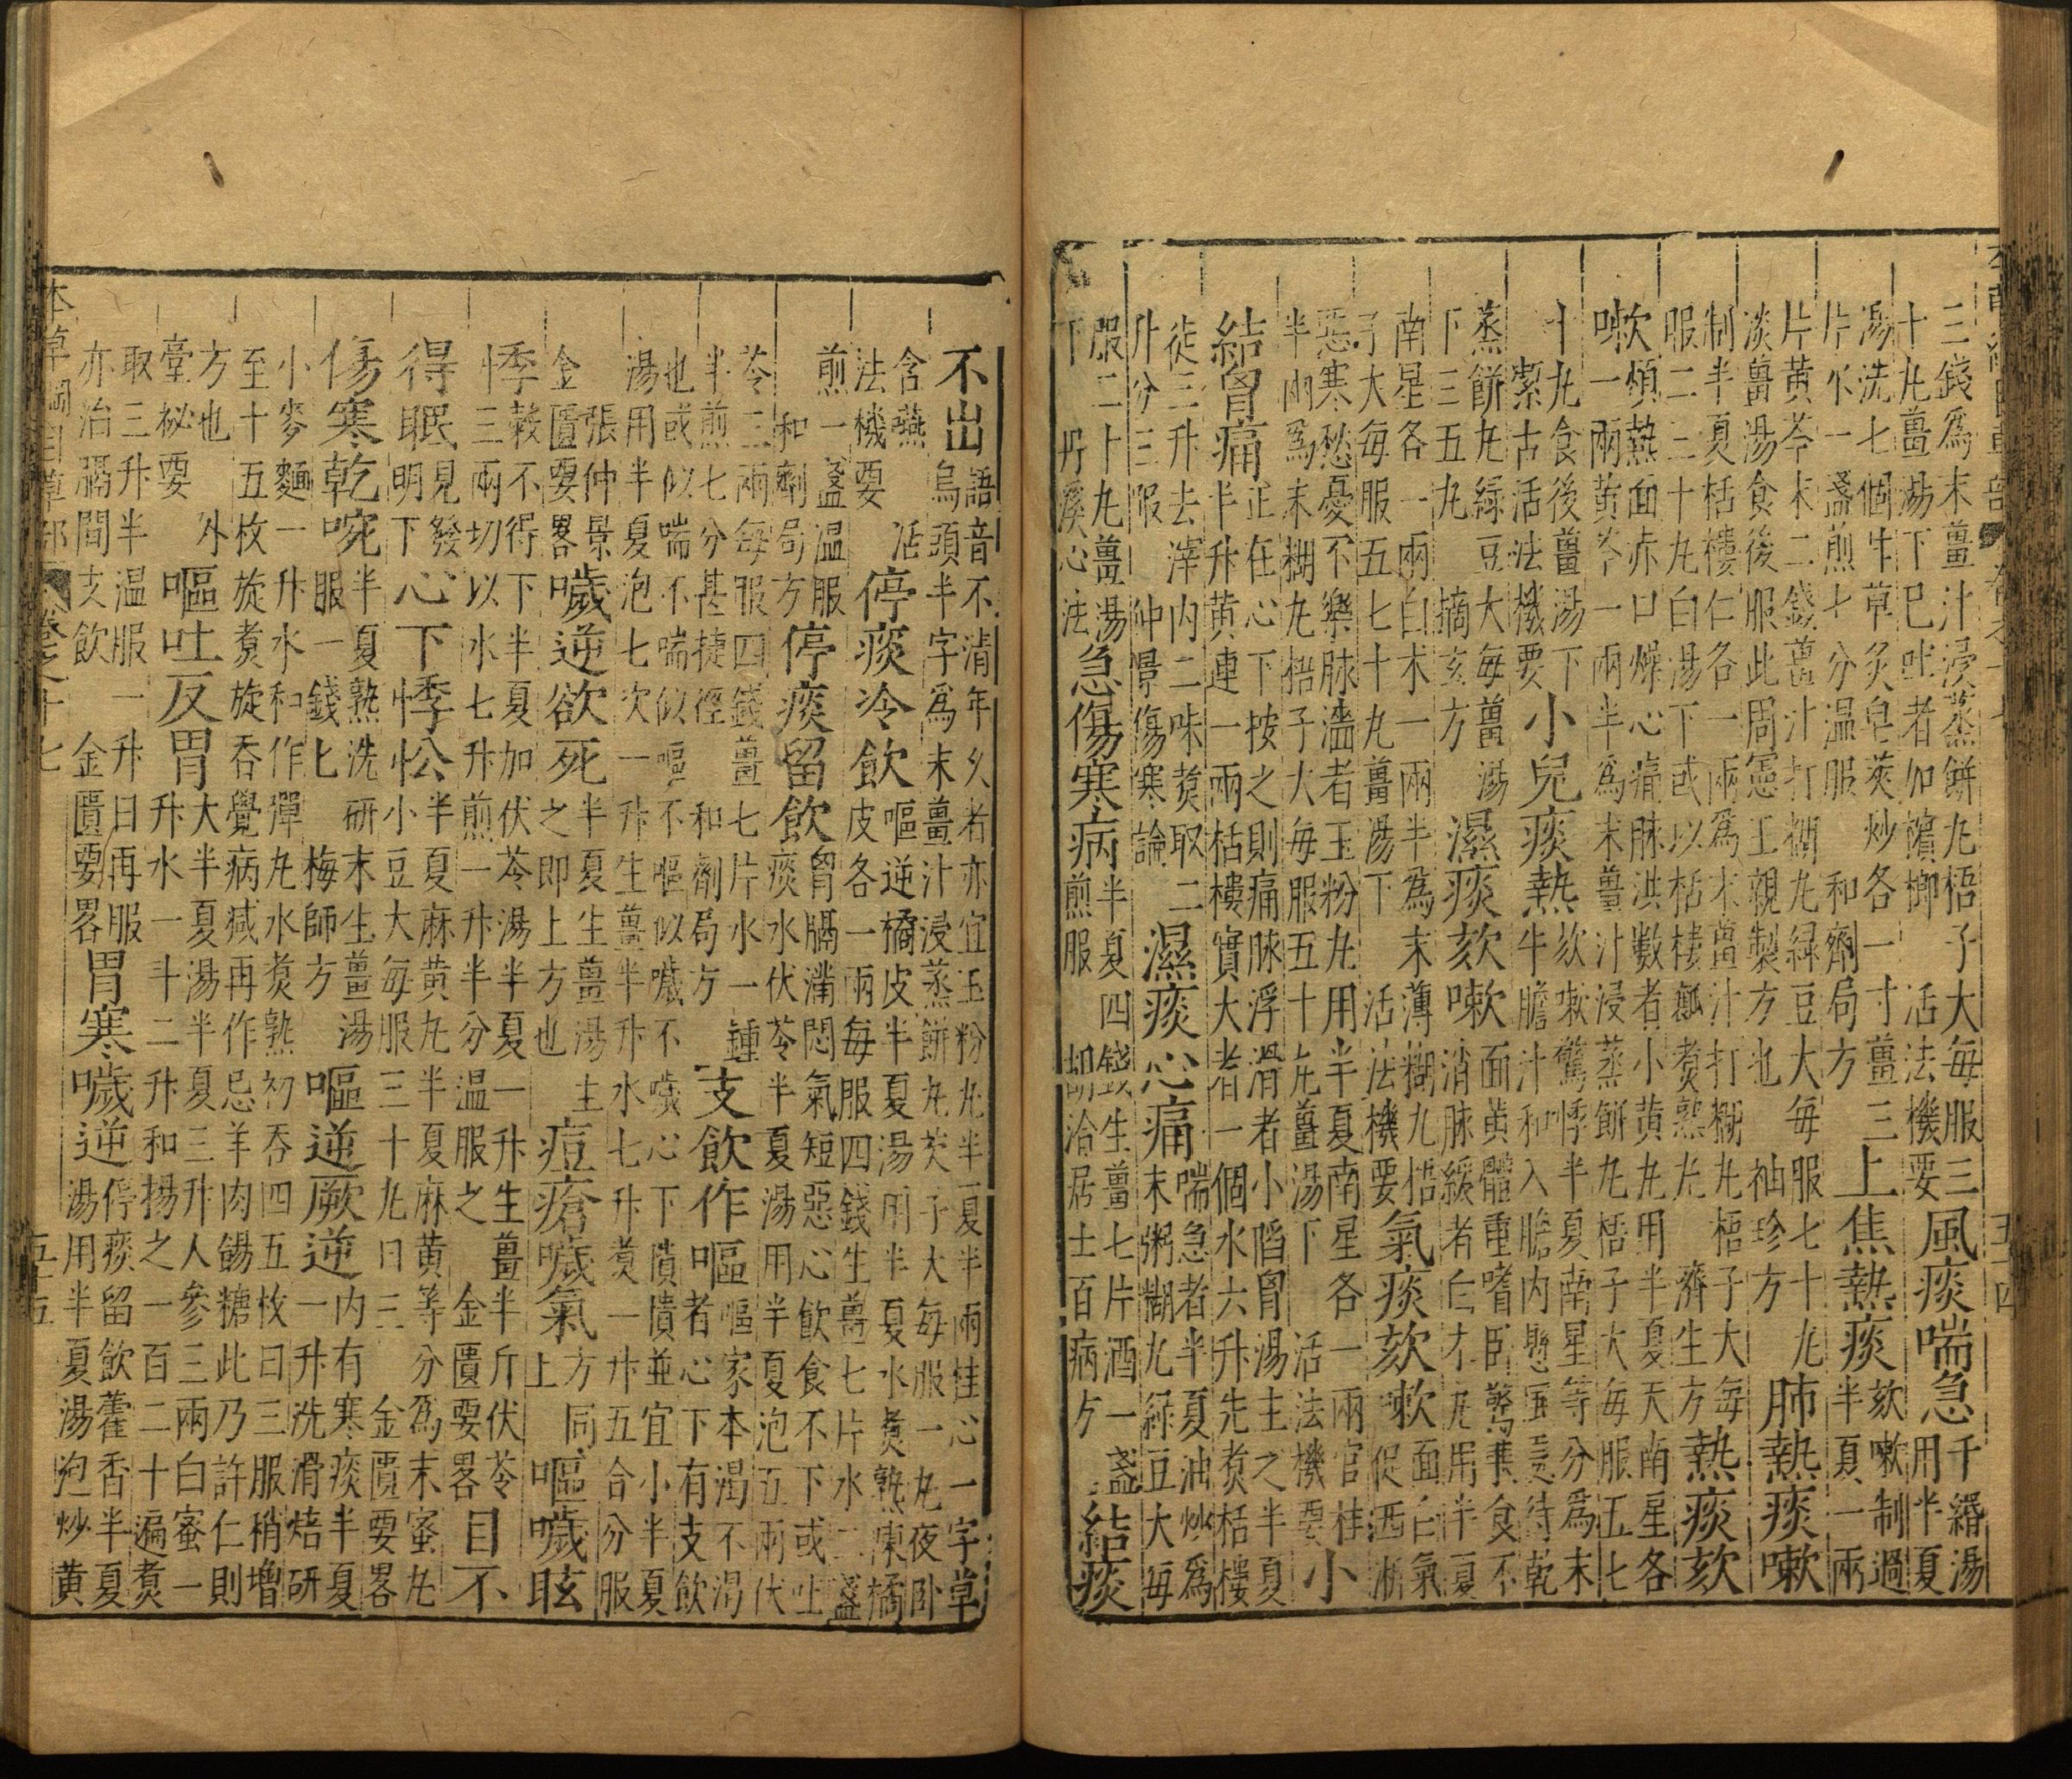 本草綱目草部 卷之十七 五十四
三錢為末薑汁浸蒸餅丸梧子大每服三
十丸薑湯下已吐者加檳榔 活法機要
風痰喘急
千緡湯
用半夏
湯洗七個生草炙皂莢炒各一寸薑三
片水一盞煎七分溫服 和劑局方
上焦熱痰
欬嗽制過
半夏一兩
片黃芩末二錢薑汁打糊丸綠豆大每服七十丸
淡薑湯食後服此周憲王親製方也 袖珍方
肺熱痰嗽
制半夏栝樓仁各一兩為末薑汁打糊丸梧子大每
服二三十丸白湯下或以栝樓瓤煑熟丸 濟生方
熱痰欬
嗽
煩熱面赤口燥心痛脉洪數者小黃丸用半夏天南星各
一兩黃芩一兩半為末薑汁浸蒸餅丸梧子大每服五七
十丸食後薑湯下
潔古活法機要
小兒痰熱
欬嗽驚悸半夏南星等分為末
牛膽汁和入膽內懸風處待乾
蒸餅丸綠豆大每薑湯
下三五丸 摘玄方
濕痰欬嗽
面黃體重嗜臥驚兼食不
消脉緩者白朮丸用半夏
南星各一兩白朮一兩半為末薄糊丸梧
子大每服五七十丸薑湯下 活法機要
氣痰欬嗽
面白氣
促洒淅
惡寒愁憂不樂脉濇者玉粉丸用半夏南星各一兩官桂
半兩為末糊丸梧子大每服五十丸薑湯下 活法機要
小
結胷痛
正在心下按之則痛脉浮滑者小陷胷湯主之半夏
半升黃連一兩栝樓實大者一個水六升先煑栝樓
徒三升去滓內二味煑取二
升分三服 仲景傷寒論
濕痰心痛
喘急者半夏油炒為
末粥糊丸綠豆大每
服二十丸薑湯
下 丹溪心法
急傷寒病
半夏四錢生薑七片酒一盞
煎服 胡洽居士百病方
結痰
不出
語音不清年久者亦宜玉粉丸半夏半兩桂心一字草
烏頭半字為末薑汁浸蒸餅丸芡子大每服一丸夜卧
含嚥 活
法機要
停痰冷飲
嘔逆橘皮半夏湯用半夏水煑熟陳橘
皮各一兩每服四錢生薑七片水二盞
煎一盞溫服
和劑局方
停痰留飲
胷膈滿悶氣短惡心飲食不下或吐
痰水伏苓半夏湯用半夏泡五兩伏
苓三兩每服四錢薑七片水一鍾
半煎七分甚捷徑 和劑局方
支飲作嘔
嘔家本渴不渴
者心下有支飲
也或似喘不喘似嘔不嘔似噦不噦心下憒憒並宜小半夏
湯用半夏泡七次一升生薑半升水七升煑一升五合分服
張仲景
金匱要畧
噦逆欲死
半夏生薑湯主
之即上方也
痘瘡噦氣
方同
上
嘔噦眩
悸
穀不得下半夏加伏苓湯半夏一升生薑半斤伏苓
三兩切以水七升煎一升半分溫服之 金匱要畧
目不
得眠
見發
明下
心下悸忪
半夏麻黃丸半夏麻黃等分為末蜜丸
小豆大每服三十丸日三 金匱要畧
傷寒乾啘
半夏熟洗研末生薑湯
服一錢匕 梅師方
嘔逆厥逆
內有寒痰半夏
一升洗滑焙研
小麥麵一升水和作彈丸水煑熟初吞四五枚日三服稍增
至十五枚旋煑旋吞覺病減再作忌羊肉餳糖此乃許仁則
方也 外
臺祕要
嘔吐反胃
大半夏湯半夏三升人參三兩白蜜一
升水一斗二升和揚之一百二十遍煑
取三升半溫服一升日再服
亦治膈間支飲 金匱要畧
胃寒噦逆
停痰留飲藿香半夏
湯用半夏湯泡炒黃
本草綱目草部 卷之十七 五十五